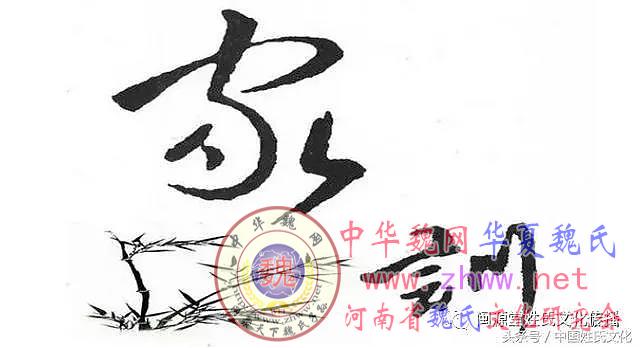 家
訓
中华魏网
魏
中华魏网华夏魏氏
www.zhww.net
河南省魏氏文化研究会
闽源堂姓氏文化传播
头条号／中国姓氏文化